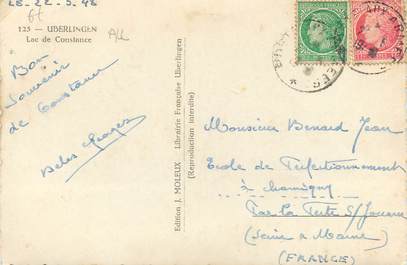 125 — UBERLINGEN
Lac de Constance
Bon
Souvenir
de Constance
Edition J. MOLEUX - Librairie Française Uberlingen
(Reproduction interdite)
Monsieur Benard Jean
Ecole de Perfectionnement
à Chamigny
Par La Ferté S/Jouarre
(Seine & Marne)
(FRANCE)